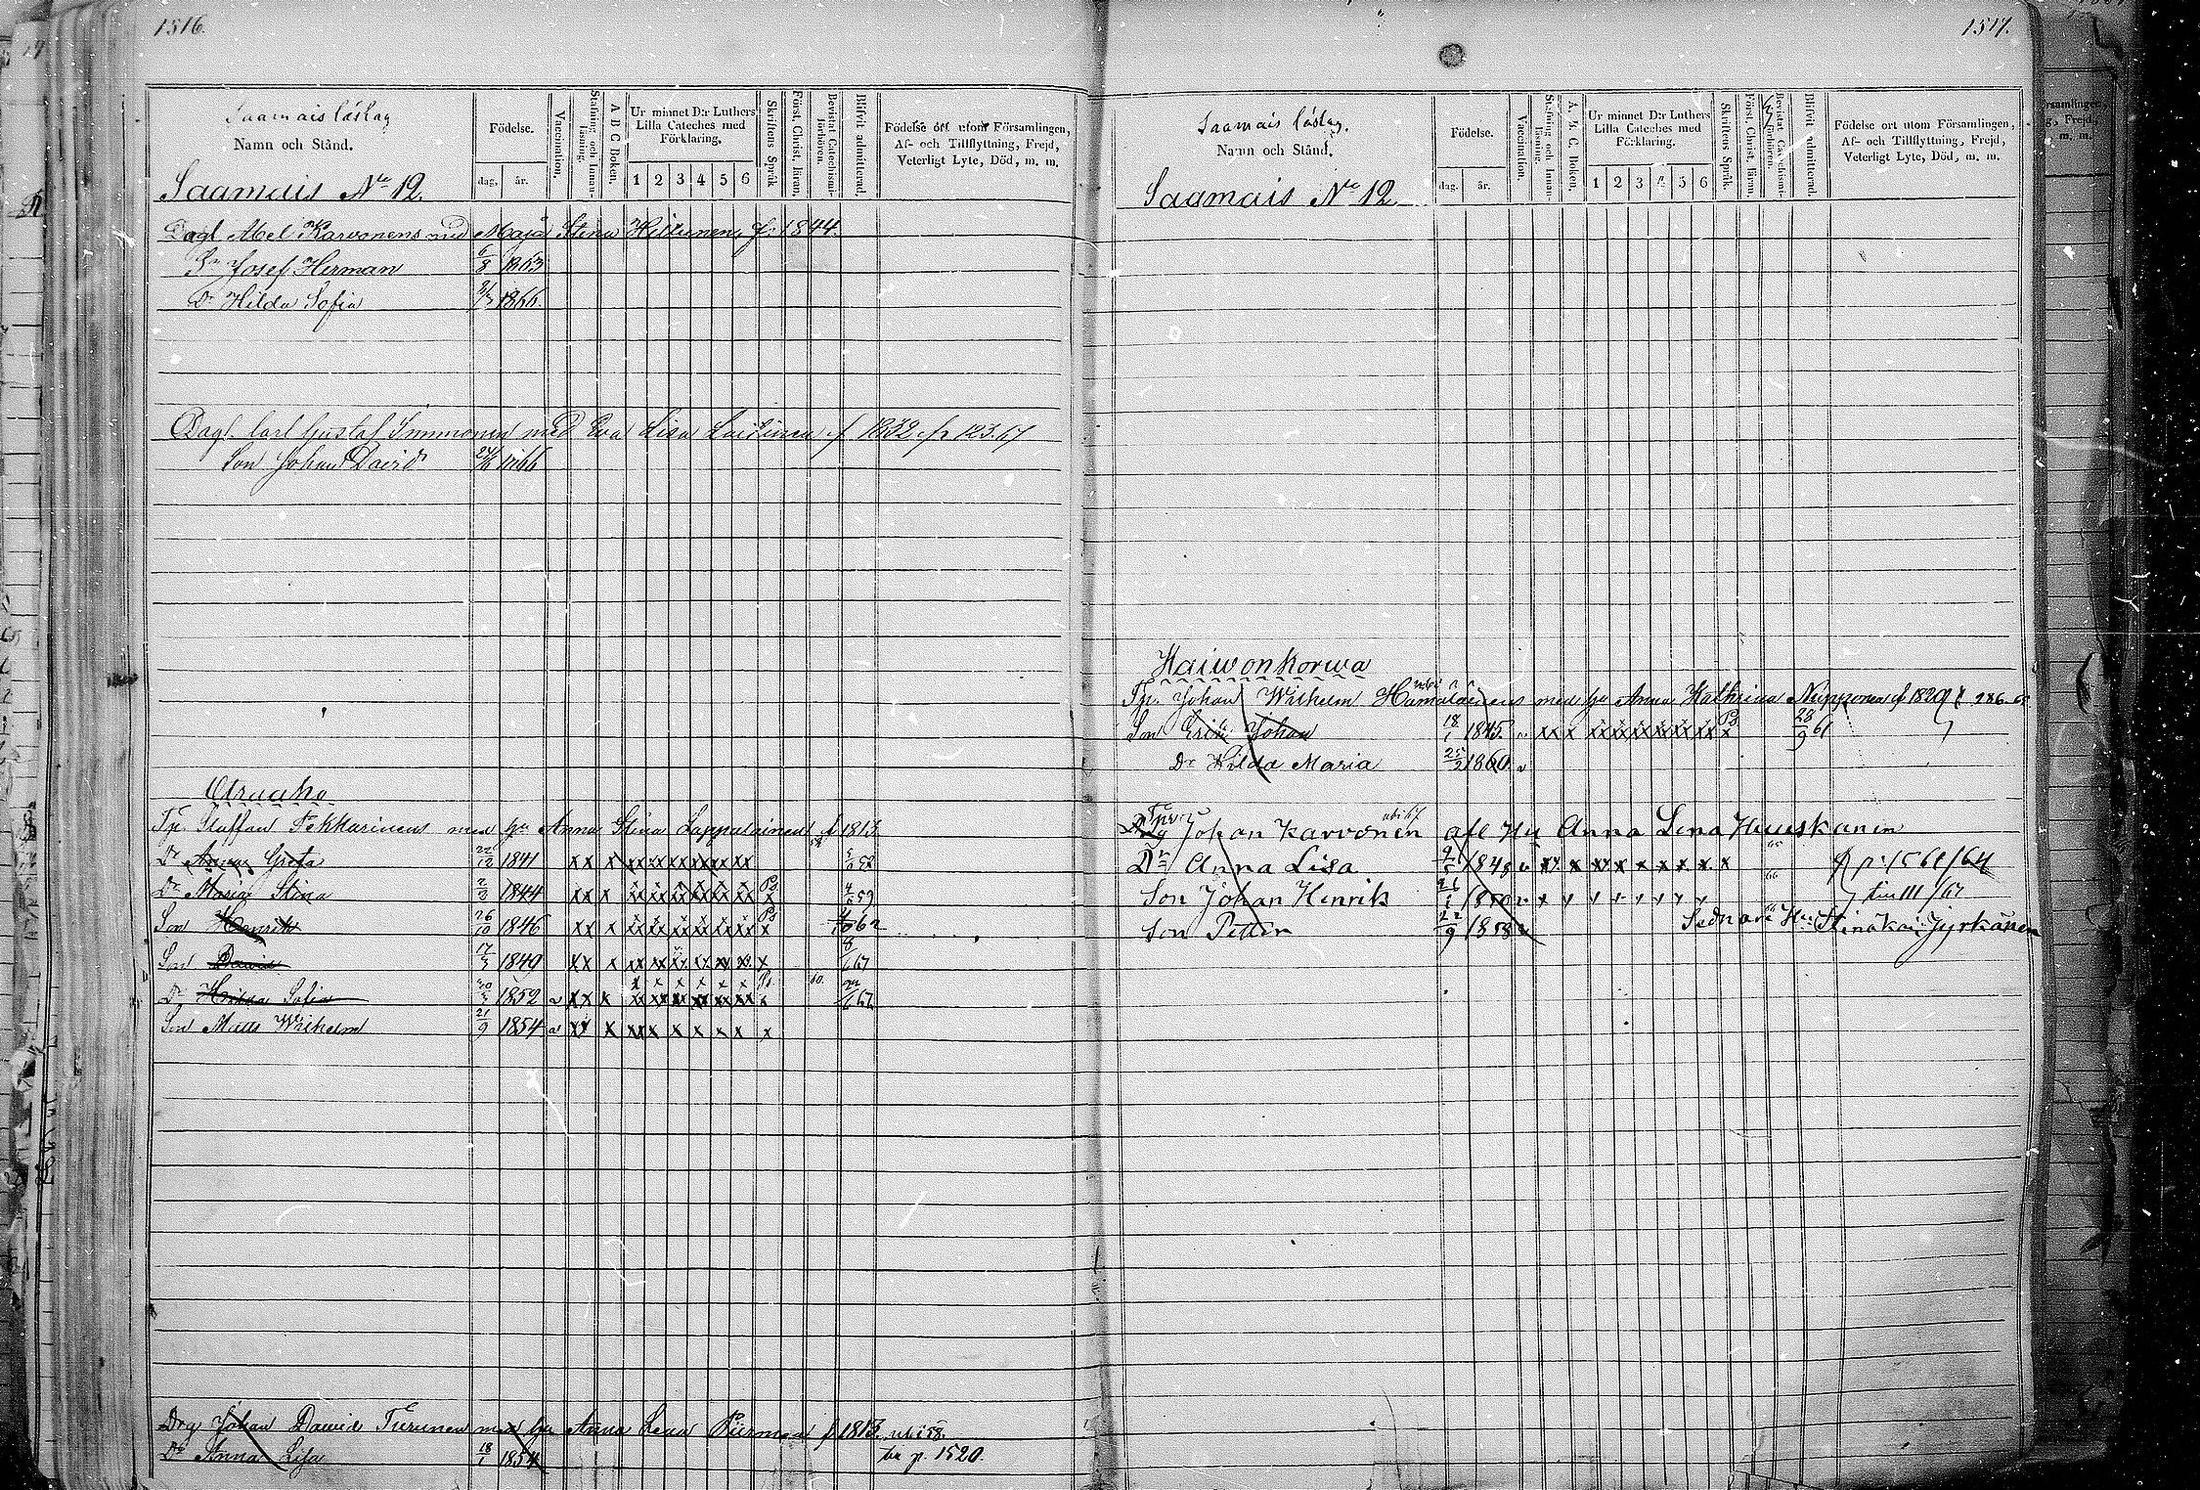 1516.
Saamais läslag
Namn och Stånd.
Födelse.
dag. år.
Vaccination.
Stafning och Innanläsning.
A B C Boken.
Ur minnet D:r Luthers Lilla Cateches med Förklaring.
1 2 3 4 5 6
Skriftens Språk
Först. Christ. läran.
Bevistat Catechismiförhören.
Blifvit admitterad.
Födelse ort utom Församlingen,
Af- och Tillflyttning, Frejd,
Veterligt Lyte, Död, m. m.
Saamais No 12.
Dagl. Abel Karvonens med Maja Stina Hiltunen f. 1844.
Sn Josef Herman 6/8 1863
Dr Hilda Sofia 1866
Dagl. Carl Gustaf Immonen med Eva Lisa Laitinen f 1832 fr 123.67
Son Johan David 1866
Oraaho
Tp. Staffan Pekkarinens med hu Anna Stina Lappalainen f 1813
Dr Anna Greta 22/12 1841 x x x x x x x x x x
Dr Maria Stina 2/3 1844 x x x x x x x x x Ps x 59
Son Henrik 26/10 1846 x x x x x x x x x Ps x 62
Son David 17/3 1849 x x x x x x x x x x 67
Dr Hilda Sofia 1852 v x x x x x x x x x Ps x 60. 67
Son Matts Wilhelm 21/9 1854 v x x x x x x x x x x
Drg Johan Dawid Turunen med hu Anna Lena Piironen f 1813. uti 58.
Dr Anna Lisa 18/1 1854 tr p. 1520.
1517.
Saamais läslag.
Namn och Stånd.
Födelse.
dag. år.
Vaccination.
Stafning och Innanläsning.
A. B. C. Boken.
Ur minnet D:r Luthers Lilla Cateches med Förklaring.
1 2 3 4 5 6
Skriftens Språk.
Först. Christ. lärm.
Bevistat Catechismiförhören.
Blifvit admitterad.
Födelse ort utom Församlingen,
Af- och Tillflyttning, Frejd,
Veterligt Lyte, Död, m. m.
Saamais No 12
Haiwonkorwa
Tp. Johan Wilhelm Hämäläinens med hu Anna Kathrina Nupponen f 1829 286-65
Son Erik Johan 18/1 1845. v x x x x x x x x x Ps x 28/9 61
Dr Hilda Maria 25/2 1860. v
Johan Karvonen uti 67 afl Hu Anna Lena Huuskonen
Dr Anna Lisa 9/5 1848 v x x x x x x x x x x 65 p. 1561/64
Son Johan Henrik 26/1 1850 v x x x x x x x x 66 till 111/67
Son Petter 22/9 1858 v Sednare Hu: Stina Kai: Jyrkänen